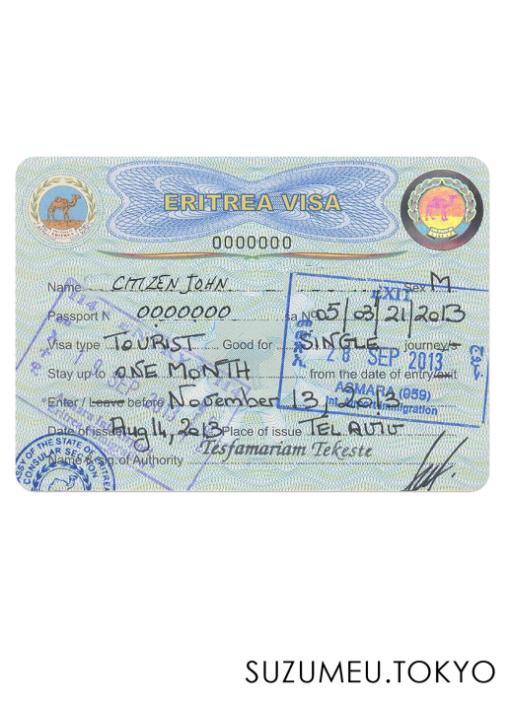 ERITREA VISA
0000000
Name CITIZEN JOHN Sex M
Passport N 0000000 sa No 05/03/21/2013
Visa type TOURIST Good for SINGLE journey/s
Stay up to ONE MONTH from the date of entry/exit
*Enter / Leave before November 13, 2013
Date of issue Aug 14, 2013 Place of issue TEL AVIV
Name & sign. of Authority Tesfamariam Tekeste
EXIT
28 SEP 2013
خروج
ASMARA (959)
Int. Airport Immigration
SEP
ASSY OF THE STATE OF ERITREA
CONSULAR SECTION
SUZUMEU.TOKYO